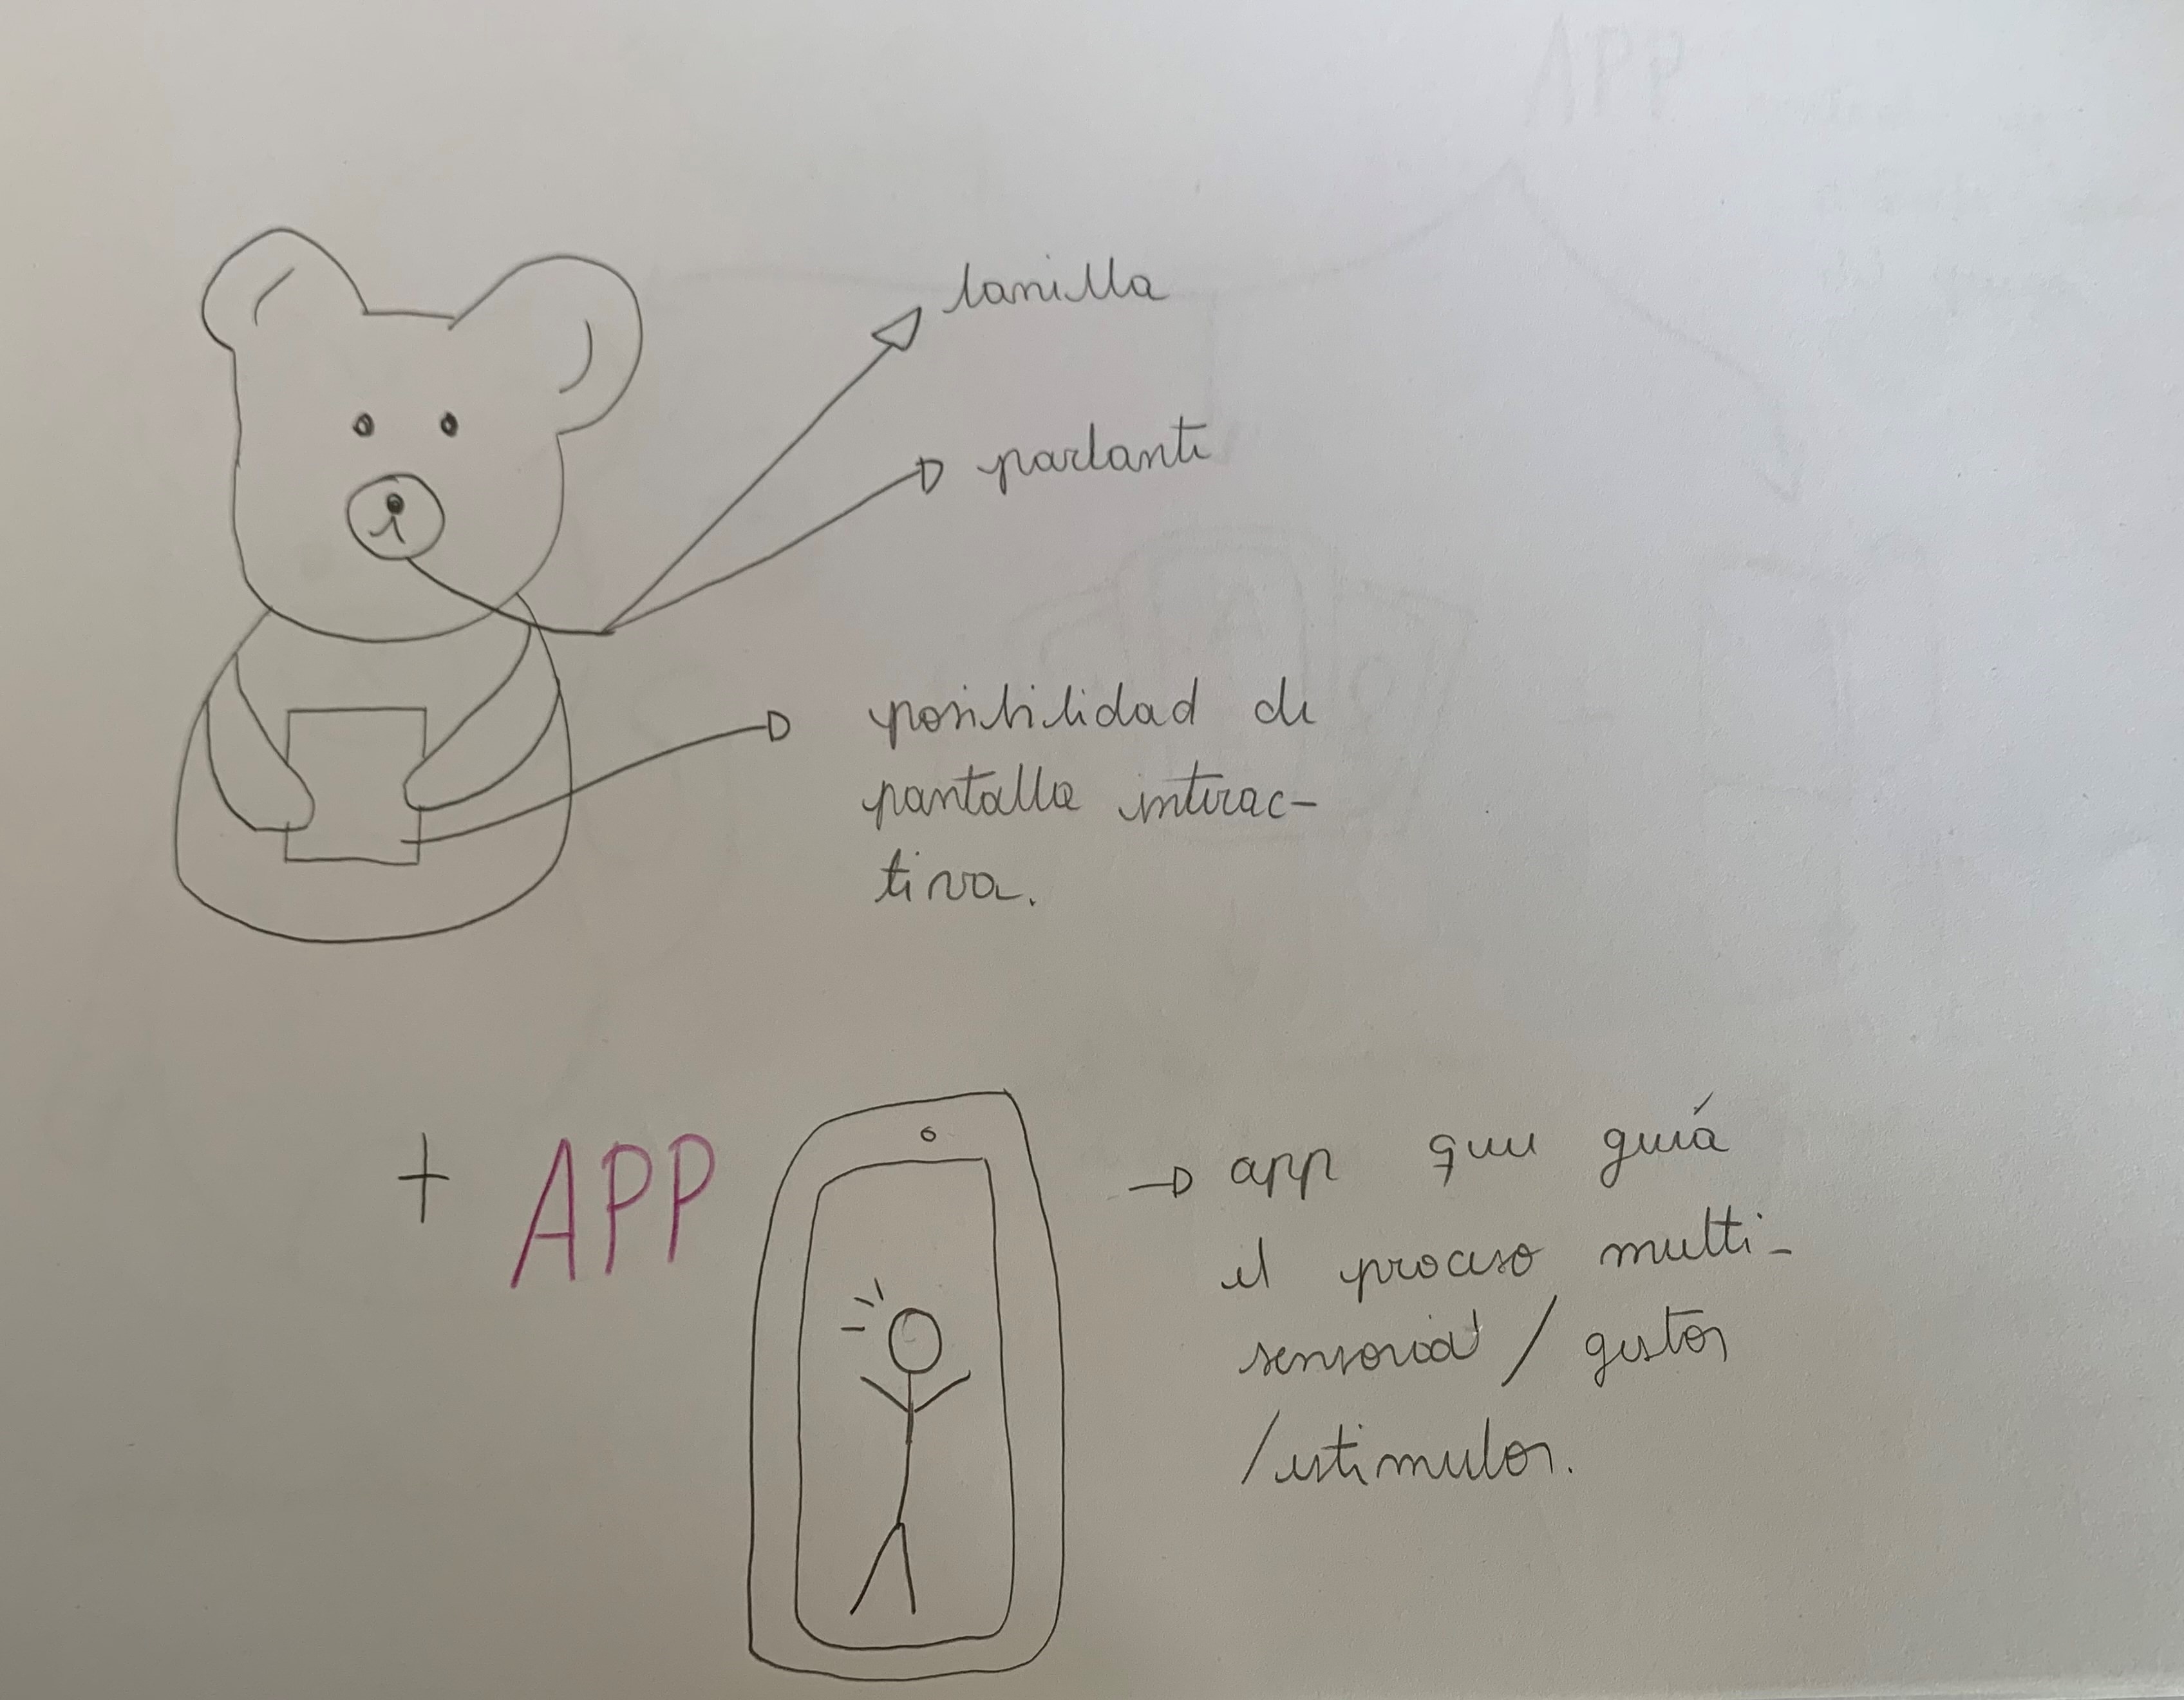 lanilla
parlante
posibilidad de
pantalla interac-
tiva.
+ APP
→ app que guiá
el proceso multi-
sensorial / gestos
/estimulos.
APP